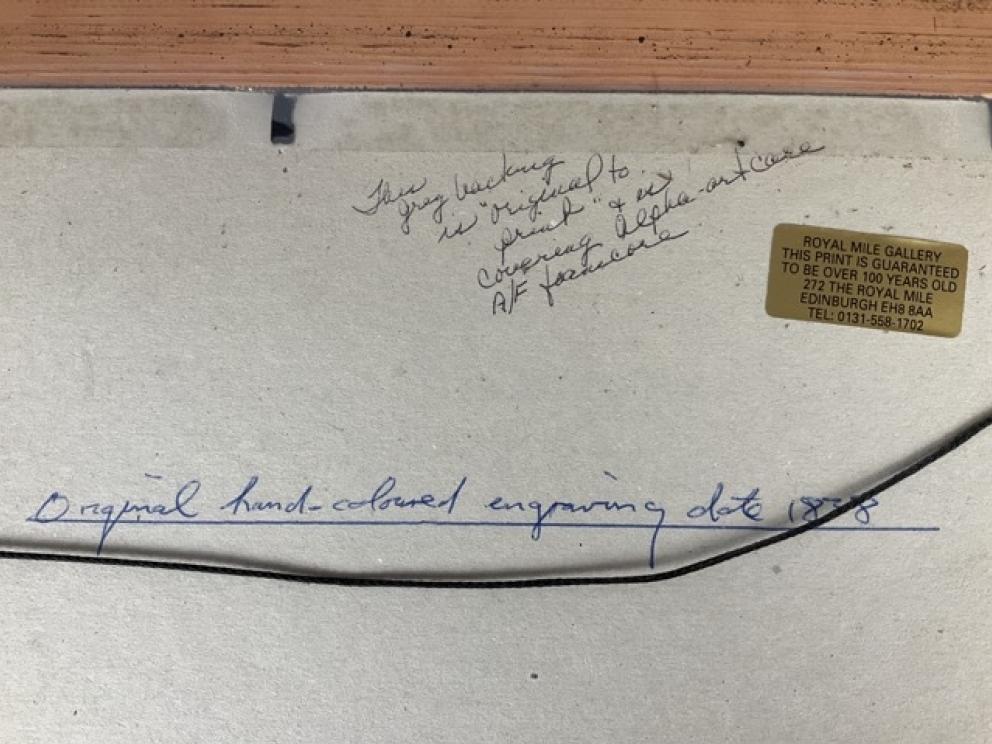 This
grey backing
is "original to
print" & is
covering Alpha-artcare
A/F foamcore
ROYAL MILE GALLERY
THIS PRINT IS GUARANTEED
TO BE OVER 100 YEARS OLD
272 THE ROYAL MILE
EDINBURGH EH8 8AA
TEL: 0131-558-1702
Original hand-coloured engraving date